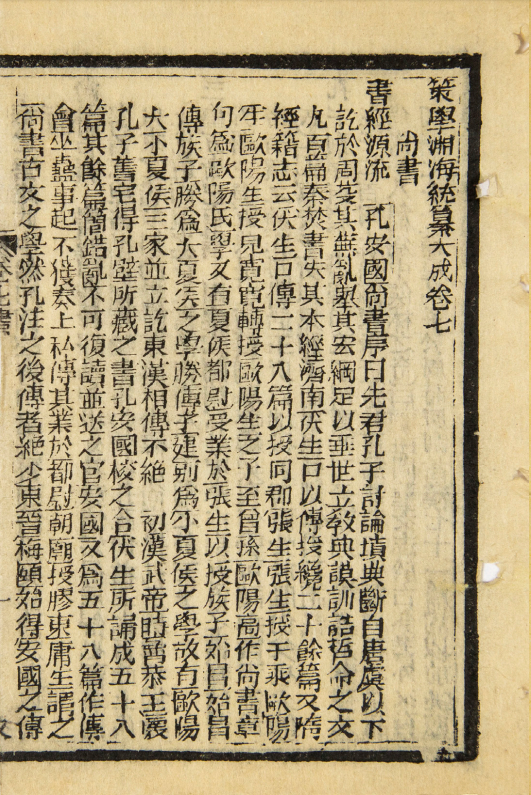 策學淵海統纂大成卷七
尚書
書經源流　孔安國尚書序曰先君孔子討論墳典斷自唐虞以下
訖於周芟其蘩亂舉其宏綱足以垂世立敎典謨訓誥誓命之文
凡百篇秦焚書失其本經濟南伏生口以傳授纔二十餘篇又隋
經籍志云伏生口傳二十八篇以授同郡張生張生授千乘歐陽
生歐陽生授兒寬寬轉授歐陽生之子至曾孫歐陽高作尚書章
句爲歐陽氏學又有夏侯都尉受業於張生以授族子始昌始昌
傳族子勝爲大夏侯之學勝傳子建別爲小夏侯之學故有歐陽
大小夏侯三家並立訖東漢相傳不絕　初漢武帝時魯恭王壞
孔子舊宅得孔壁所藏之書孔安國校之合伏生所誦成五十八
篇其餘篇簡錯亂不可復讀並送之官安國又爲五十八篇作傳
會巫蠱事起不獲奏上私傳其業於都尉朝朝授膠東庸生謂之
尚書古文之學然孔注之後傳者絕少東晉梅頤始得安國之傳